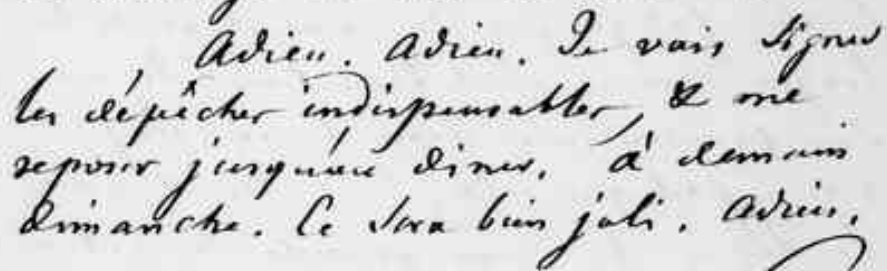 Adieu. Adieu. Je vais signer
les dépêches indispensables, & me
reposer jusqu'au diner. à demain
dimanche. Ce sera bien joli. Adieu.